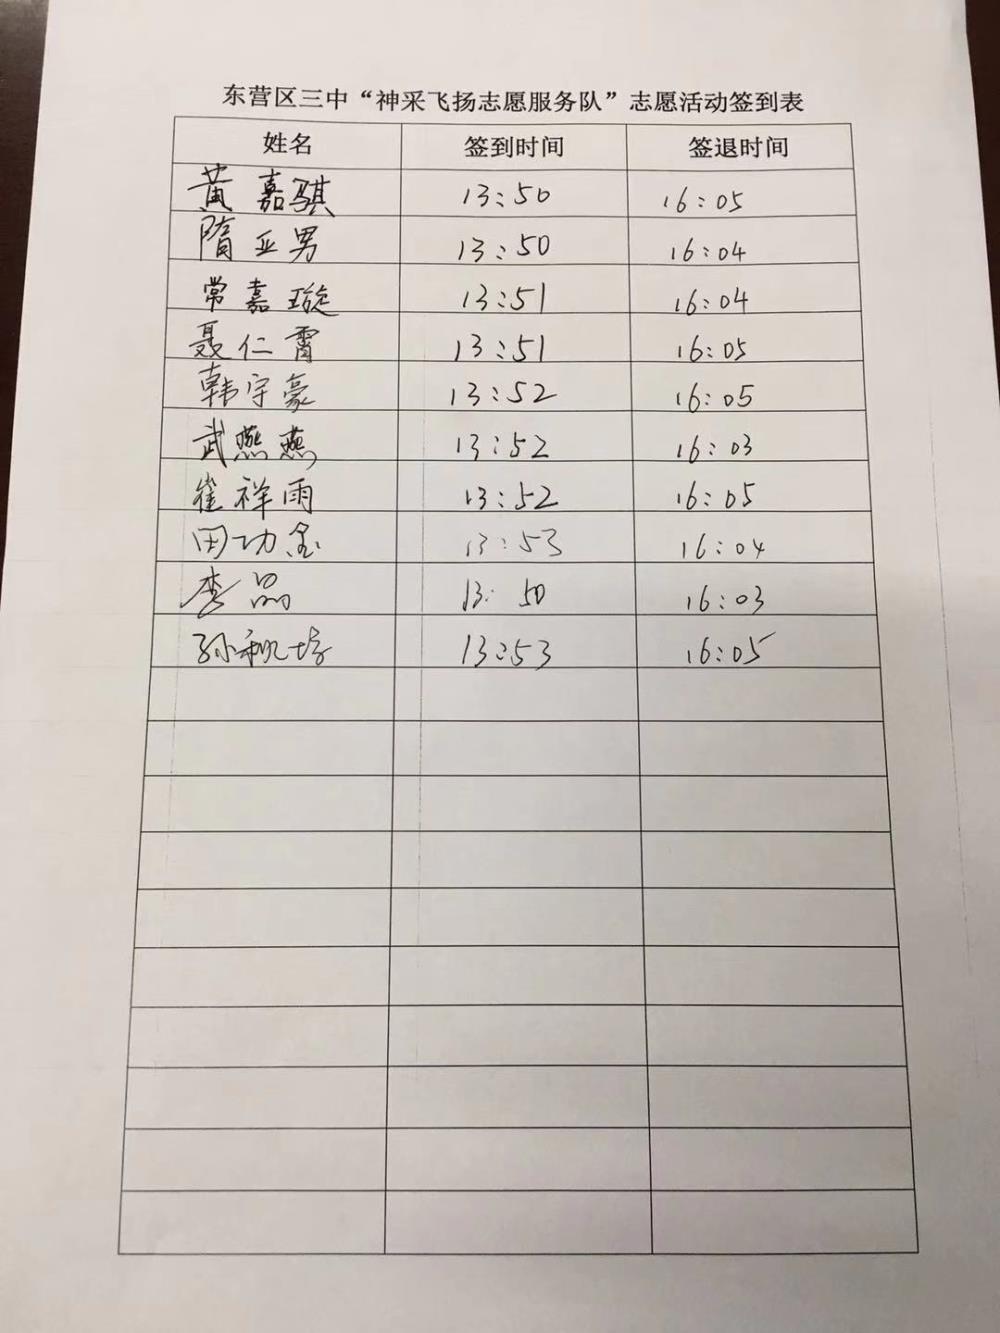 东营区三中“神采飞扬志愿服务队”志愿活动签到表
姓名 签到时间 签退时间
黄嘉骐 13:50 16:05
隋亚男 13:50 16:04
常嘉璇 13:51 16:04
聂仁霄 13:51 16:05
韩宇豪 13:52 16:05
武燕燕 13:52 16:03
崔祥雨 13:52 16:05
田功 13:53 16:04
李晶 13:50 16:03
孙 13:53 16:05